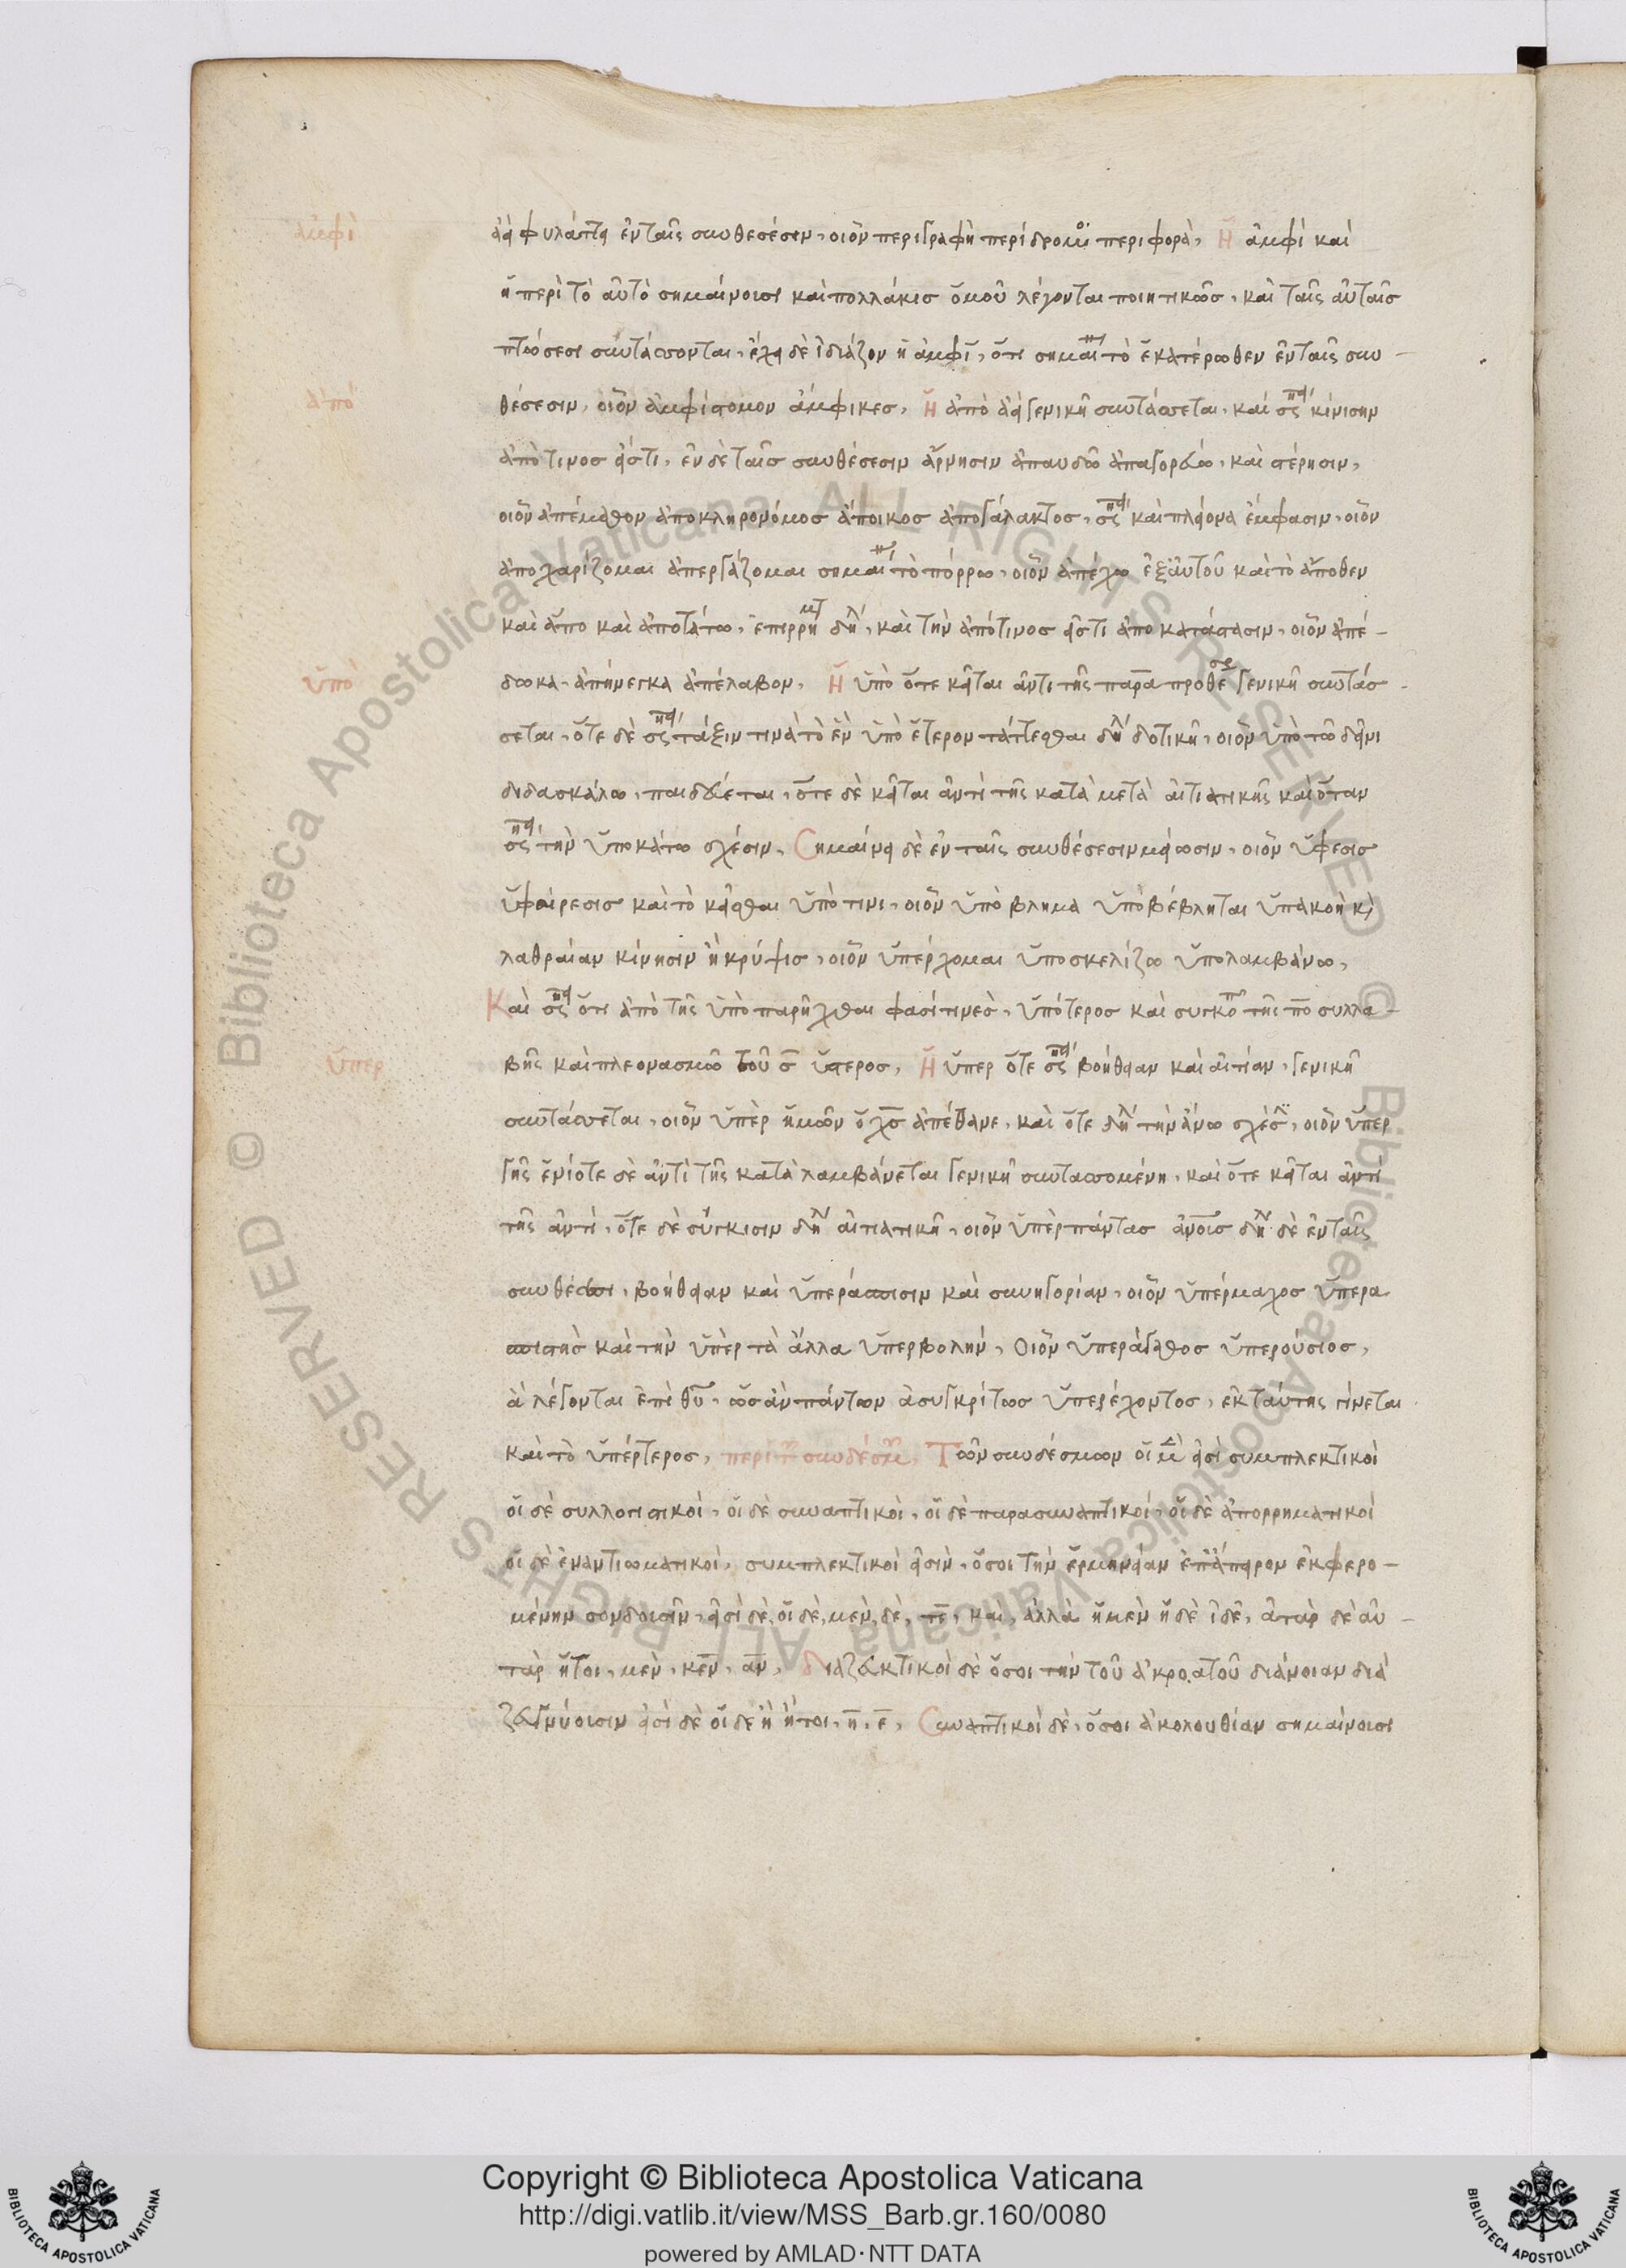 ἀμφὶ
ἀεὶ φυλάττει ἐν ταῖς συνθεσέσιν, οἷον περιγραφὴ περίδρομος περιφορὰ, Ἡ ἀμφὶ καὶ
ἡ περὶ τὸ αὐτὸ σημαίνουσι καὶ πολλάκις ὁμοῦ λέγονται ποιητικῶς, καὶ ταῖς αὐταῖς
πτώσεσι συντάσσονται, ἔχει δὲ ἰδιάζον ἡ ἀμφὶ, ὅτι σημαί τὸ ἑκατέρωθεν ἐν ταῖς συν-
ἀπό
θέσεσιν, οἷον ἀμφίστομον ἀμφικες, Ἡ ἀπὸ ἀεὶ γενικῇ συντάσσεται, καὶ κίνισην
ἀπὸ τινος ἐστι, ἐν δὲ ταῖς συνθέσεσιν ἄρνησιν ἀπαυδῶ ἀπαγορεύω, καὶ στέρησιν,
οἷον ἀπέμαθον ἀποκληρονόμος ἄποικος ἀπογάλακτος, καὶ πλείονα ἔμφασιν, οἷον
ἀποχαρίζομαι ἀπεργάζομαι σημαί τὸ πόρρω, οἷον ἀπέχω ἐξ αὐτοῦ καὶ τὸ ἄποθεν
καὶ ἄπο καὶ ἀποτάτω, ἐπιρρη δη, καὶ τὴν ἀπό τινος ἐστι ἀποκατάστασιν, οἷον ἀπέ-
ὑπό
δωκα, ἀπήνεγκα ἀπέλαβον, Ἡ ὑπὸ ὅτε κεῖται ἀντι τῆς παρα προθέ γενικῇ συντάσ-
σεται, ὅτε δὲ τάξιν τινὰ τὸ ἓν ὑπὸ ἕτερον τάττεσθαι δη δοτικῇ, οἷον ὑπὸ τῶ δεῖνι
διδασκάλω, παιδεύεται, ὅτε δὲ κεῖται ἀντὶ τῆς κατὰ μετὰ αἰτιατικῆς καὶ ὅταν
τὴν ὑποκάτω σχέσιν, Σημαίνει δὲ ἐν ταῖς συνθέσεσιν μείωσιν, οἷον ὕφεσις
ὑφαίρεσις καὶ τὸ κεῖσθαι ὑπό τινι, οἷον ὑπόβλημα ὑποβέβληται ὑπακοὴ κὶ
λαθραίαν κίνησιν ἢ κρύψις, οἷον ὑπέρχομαι ὑποσκελίζω ὑπολαμβάνω,
Καὶ ὅτι ἀπὸ τῆς ὑπὸ παρῆχθαι φασί τινες, ὑπότερος καὶ συγκο τῆς πο συλλα-
ὑπερ
βῆς καὶ πλεονασμῶ τοῦ σ ὕστερος, Ἡ ὑπερ ὅτε βοήθειαν καὶ αἰτίαν, γενικῇ
συντάσσεται, οἷον ὑπὲρ ἡμῶν ὁ χς ἀπέθανε, καὶ ὅτε δη τὴν ἄνω σχέσ, οἷον ὑπερ
γῆς ἐνίοτε δὲ ἀντὶ τῆς κατὰ λαμβάνεται γενικῇ συντασσομένη, καὶ ὅτε κεῖται ἀντί
τῆς ἀντί, ὅτε δὲ σύγκισιν δη αἰτιατικῇ, οἷον ὑπὲρ πάντας ἀνοις δη δὲ ἐν ταῖς
συνθέσεσι, βοήθειαν καὶ ὑπεράσπισιν καὶ συνηγορίαν, οἷον ὑπέρμαχος ὑπερα
σπιστὴς καὶ τὴν ὑπὲρ τὰ ἄλλα ὑπερβολὴν, Οἷον ὑπεράγαθος ὑπερούσιος,
ἃ λέγονται ἐπὶ θῦ, ὡς ἂν πάντων ἀσυγκρίτως ὑπερέχοντος, ἐκ ταύτης γίνεται
καὶ τὸ ὑπέρτερος, περὶ τ συνδέσμ, Τῶν συνδέσμων οἱ μὲ εἰσὶ συμπλεκτικοὶ
οἱ δὲ συλλογιστικοὶ, οἱ δὲ συναπτικοὶ, οἱ δὲ παρασυναπτικοί, οἱ δὲ ἀπορρηματικοί
οἱ δὲ ἐναντιωματικοί, συμπλεκτικοὶ εἰσὶν, ὅσοι τὴν ἑρμηνείαν ἐπ' ἄπειρον ἐκφερο-
μένην συνδουσῖν, εἰσὶ δὲ, οἵδε, μεν, δὲ, τε, και, ἀλλὰ ἠμὲν ἠδὲ ἰδὲ, ἀτὰρ δὲ αὐ-
τὰρ ἤτοι, μὲν, κεν, αν, Διαζευκτικοὶ δὲ ὅσοι τὴν τοῦ ἀκροατοῦ διάνοιαν δια
ζευγνύουσιν εἰσὶ δὲ οἵδε ἢ ἤτοι, η, ε, Συναπτικοὶ δὲ, ὅσοι ἀκολουθίαν σημαίνουσι
Copyright © Biblioteca Apostolica Vaticana
http://digi.vatlib.it/view/MSS_Barb.gr.160/0080
powered by AMLAD·NTT DATA